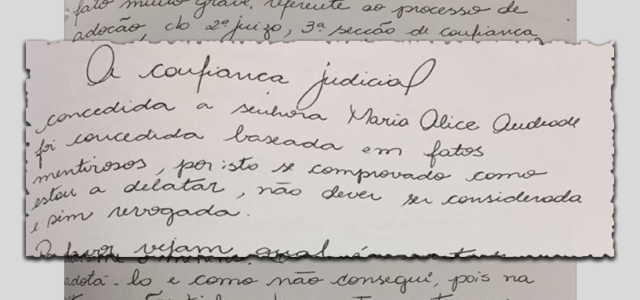 fato muito grave, referente ao processo de
adoção, do 2º juizo, 3ª secção de confiança
A confiança judicial
concedida a senhora Maria Alice Andrade
foi concedida baseada em fatos
mentirosos, por isto se comprovado como
estou a delatar, não dever ser considerada
e sim revogada.
vejam qual
adotá-lo e como não consegui, pois na